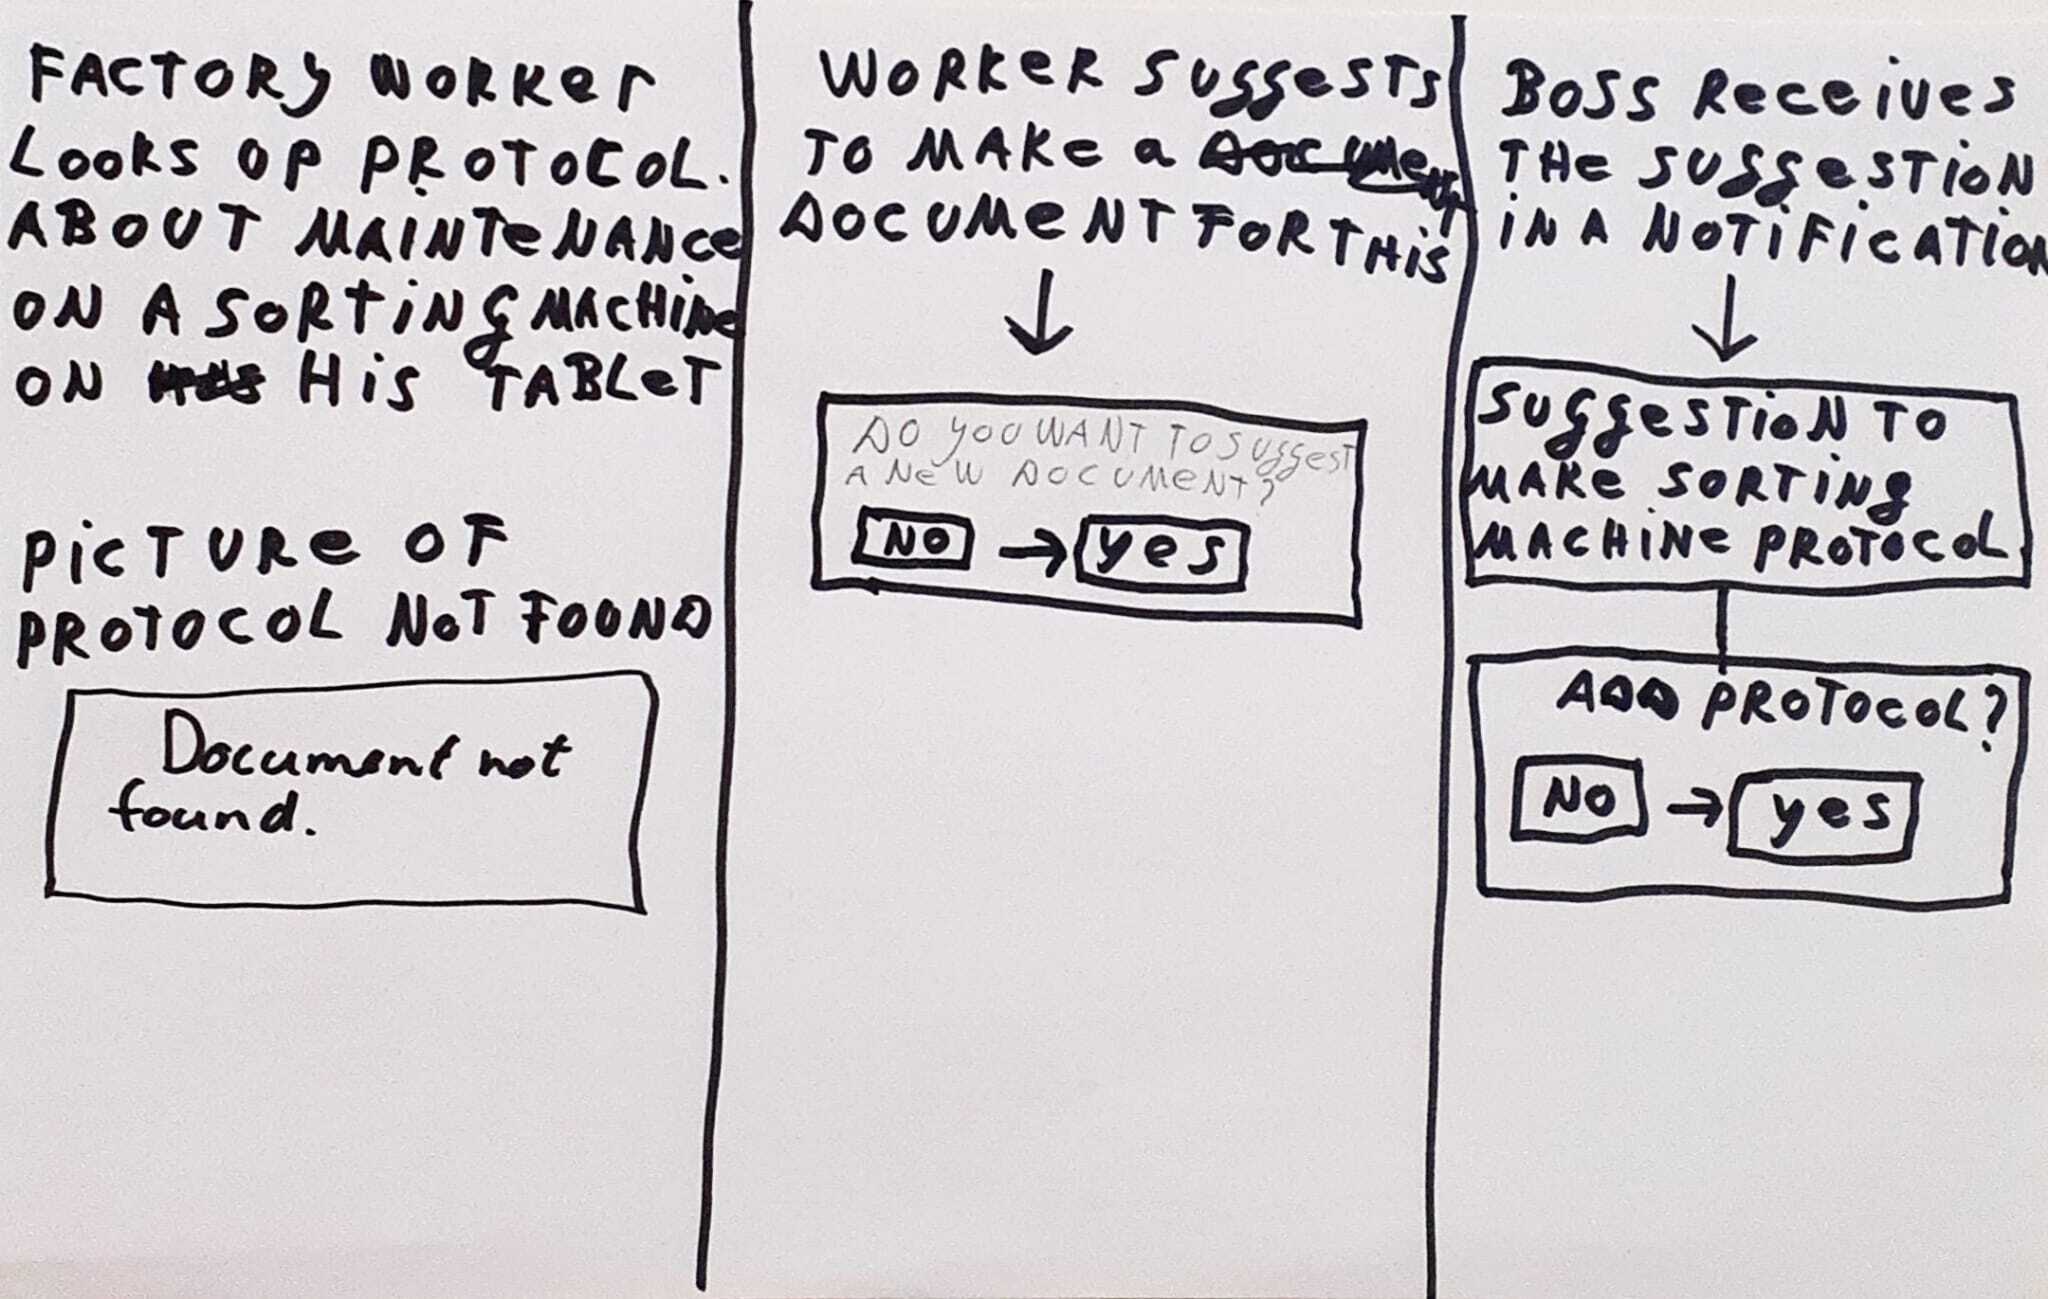 FACTORY WORKER
LOOKS OP PROTOCOL.
ABOUT MAINTENANCE
ON A SORTING MACHINE
ON HIS TABLET
PICTURE OF
PROTOCOL NOT FOUND
Document not
found.
WORKER SUGGESTS
TO MAKE A DOCUMENT
DOCUMENT FOR THIS
DO YOU WANT TO SUGGEST
A NEW DOCUMENT?
NO → YES
BOSS RECEIVES
THE SUGGESTION
IN A NOTIFICATION
SUGGESTION TO
MAKE SORTING
MACHINE PROTOCOL
ADD PROTOCOL?
NO → YES